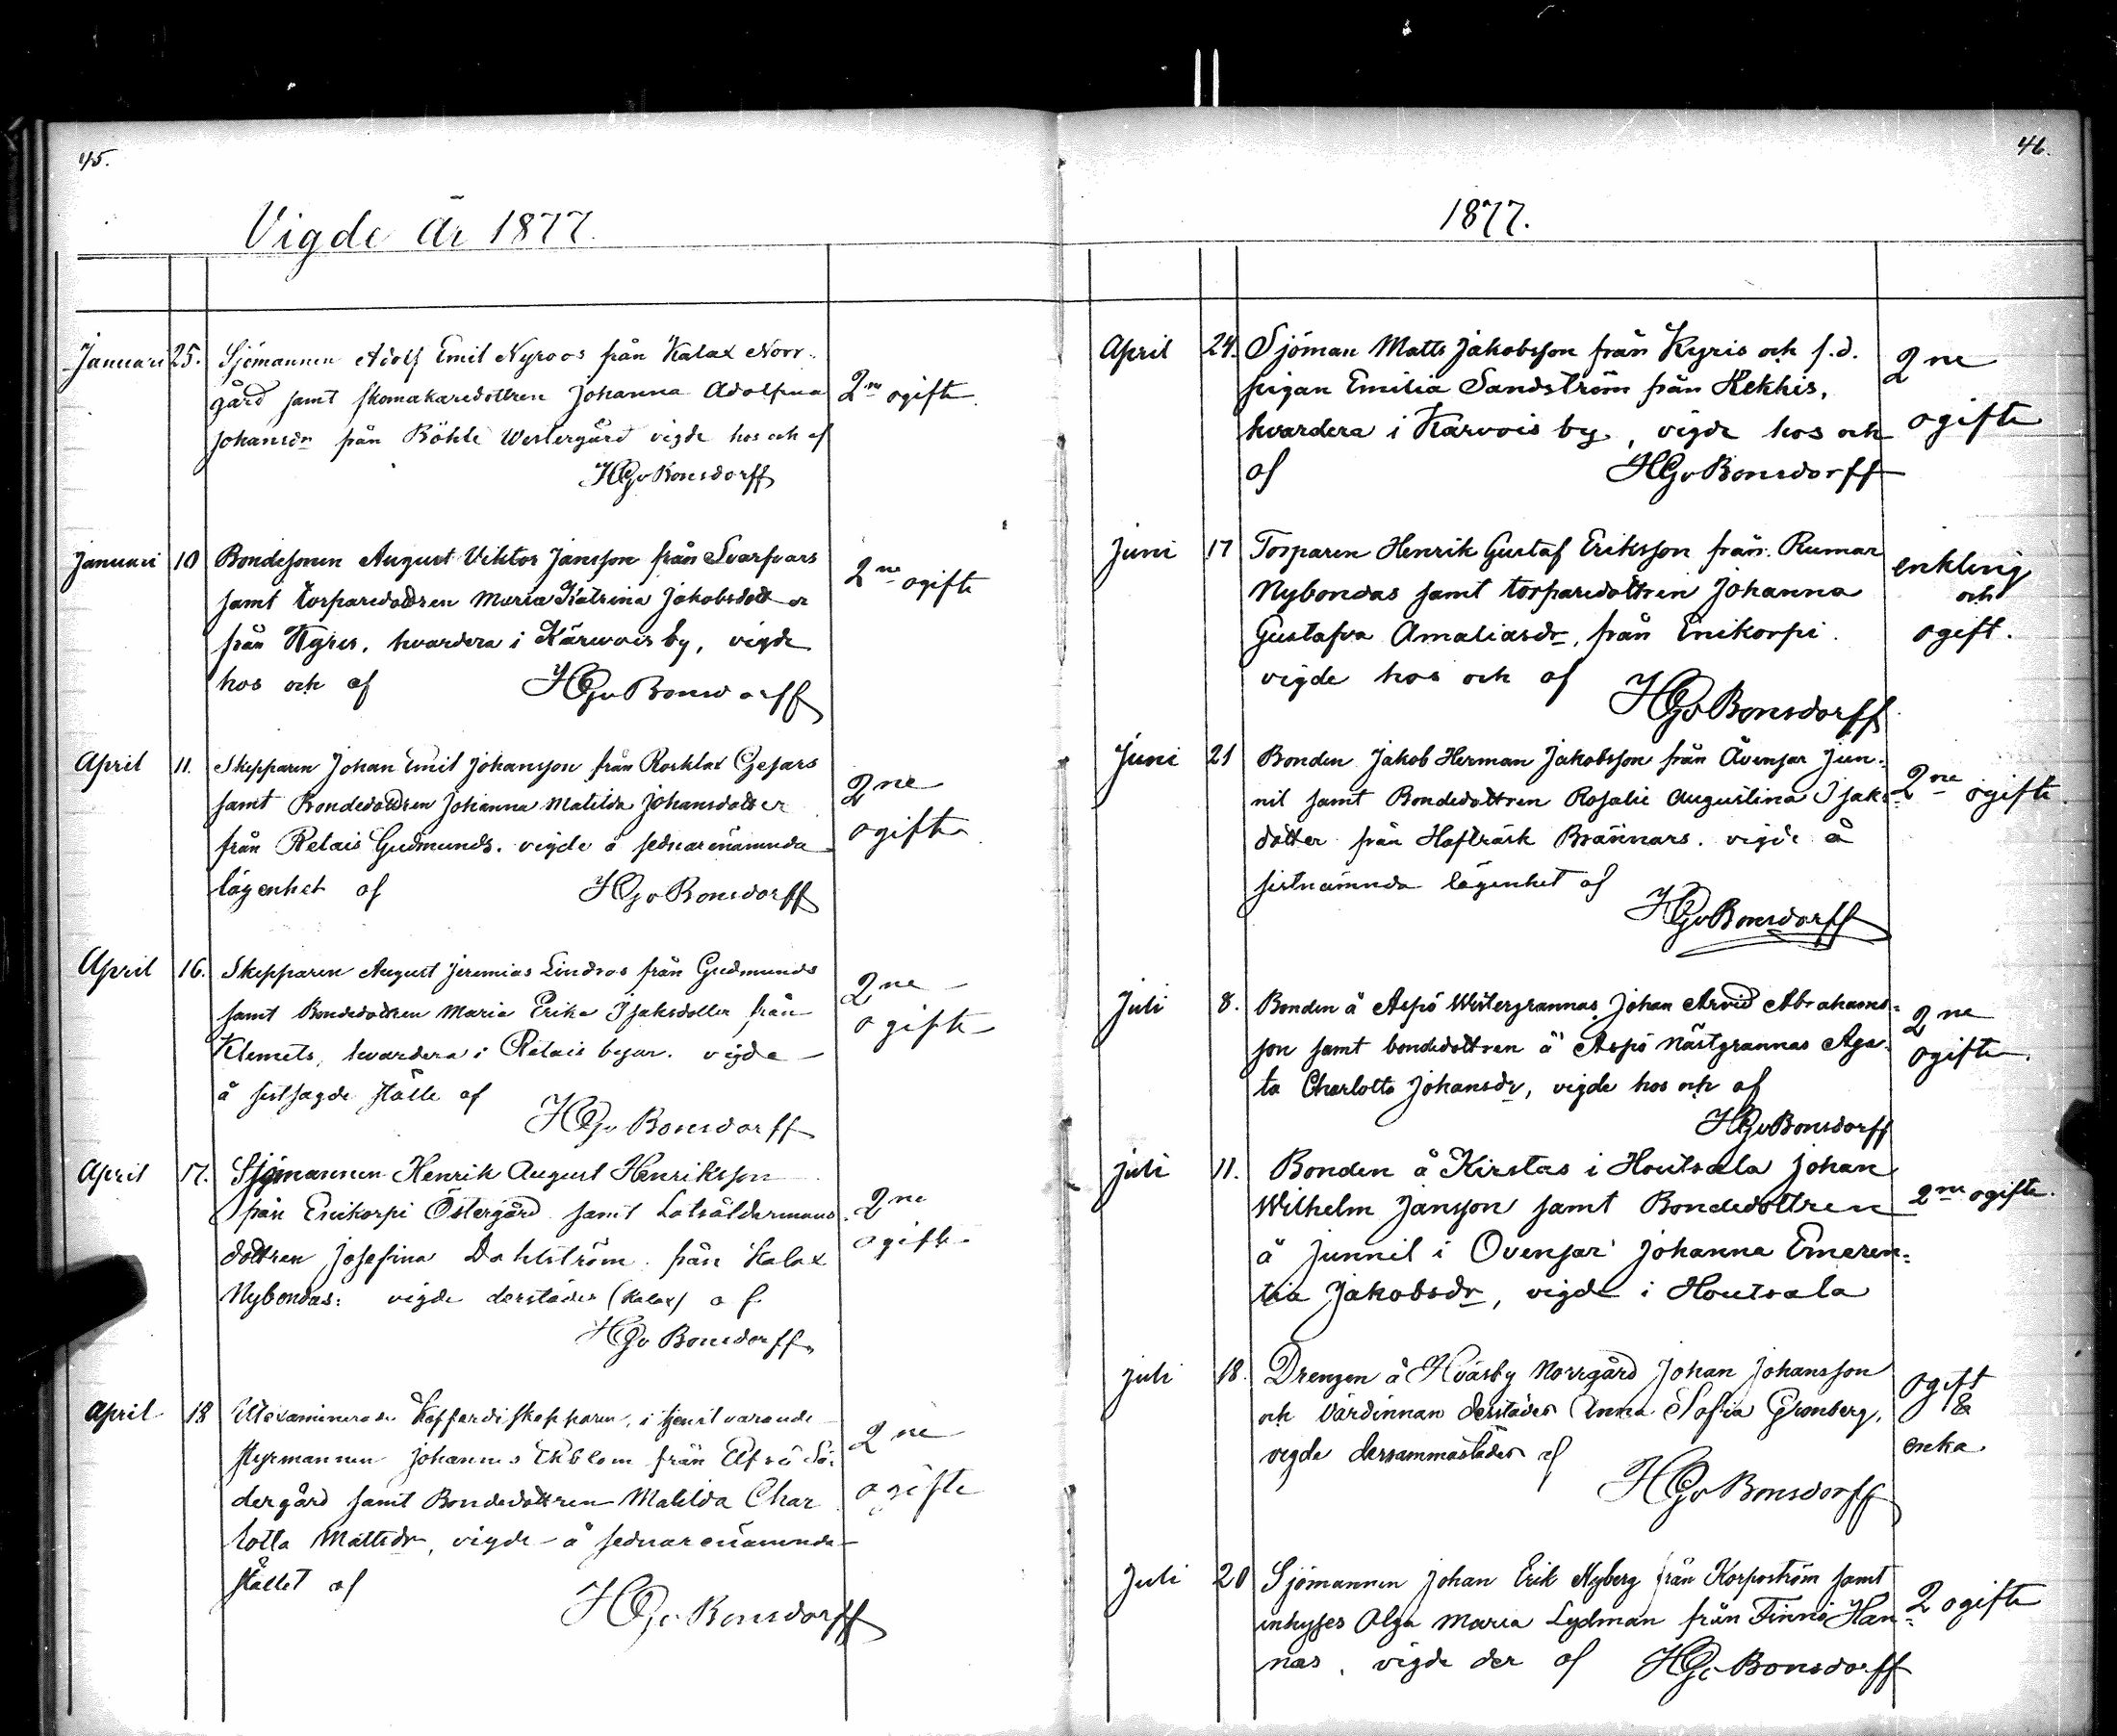 45.
Vigde år 1877.
Januari 25. Sjömannen Adolf Emil Nyroos från Kalax Norr-
gård samt skomakaredottren Johanna Adolfina 2ne ogifte.
Johansdr från Böhle Westergård vigde hos och af
HGvBonsdorff
Januari 10 Bondesonen August Viktor Jansson från Svarfvars
samt torparedottren Maria Katrina Jakobsdotter 2ne ogifte
från Kyris, hvardera i Kärwois by, vigde
hos och af HGvBonsdorff
April 11. Skepparen Johan Emil Johansson från Rosklax Gesars
samt Bondedottren Johanna Matilda Johansdotter 2ne
från Retais Gudmunds. vigde å sednarenämnda ogifte
lägenhet af HGvBonsdorff
April 16. Skepparen August Jeremias Lindroos från Gudmunds
samt Bondedottren Maria Erika Isaksdotter från 2ne
Klemets, hvardera i Retais byar. vigde ogifte
å sistsagde ställe af
HGvBonsdorff
April 17. Sjömannen Henrik August Henriksson
från Enikorpi Östergård samt Lotsåldermans 2ne
dottren Josefina Dahlström från Kalax ogifte
Nybondas: vigde derstädes (Kalax) af
HGvBonsdorff
April 18 Utexaminerade Kofferdiskepparen, i tjenst varande
styrmannen Johannes Ekblom från Elfsö Sö- 2ne
dergård samt Bondedottren Matilda Char ogifte
lotta Mattsdr, vigde å sednarenämnda
stället af
HGvBonsdorff
46.
1877.
April 24. Sjöman Matts Jakobsson från Kyris och f.d. 2ne
pigan Emilia Sandström från Kekkis,
hvardera i Karvois by, vigde hos och ogifte
af HGvBonsdorff
Juni 17 Torparen Henrik Gustaf Eriksson från Rumar enkling
Nybondas samt torparedottren Johanna och
Gustafva Amaliasdr, från Enikorpi. ogift.
vigde hos och af
HGvBonsdorff
Juni 21 Bonden Jakob Herman Jakobsson från Åvensar Jun-
nil samt Bondedottren Rosalie Augustina Isaks- 2ne ogifte.
dotter från Hafträsk Brännars. vigde å
sistnämnda lägenhet af
HGvBonsdorff
Juli 8. Bonden å Aspö Westergrannas Johan Arvid Abrahams- 2ne
son samt bondedottren å Aspö Nästgrannas Aga- ogifte.
ta Charlotta Johansdr, vigde hos och af
HGvBonsdorff
Juli 11. Bonden å Kirstas i Houtsala Johan
Wilhelm Jansson samt Bondedottren 2ne ogifte.
å Junnil i Ovensar Johanna Emeren-
tia Jakobsdr, vigde i Houtsala
Juli 18. Drengen å Hväsby Norrgård Johan Johansson ogift
och värdinnan derstädes Anna Sofia Gronberg, &
vigde dersammastädes af enka
HGvBonsdorff
Juli 20 Sjömannen Johan Erik Nyberg från Korpoström samt
inhyses Olga Maria Lydman från Finnö Han- 2 ogifte
nas, vigde der af HGvBonsdorff